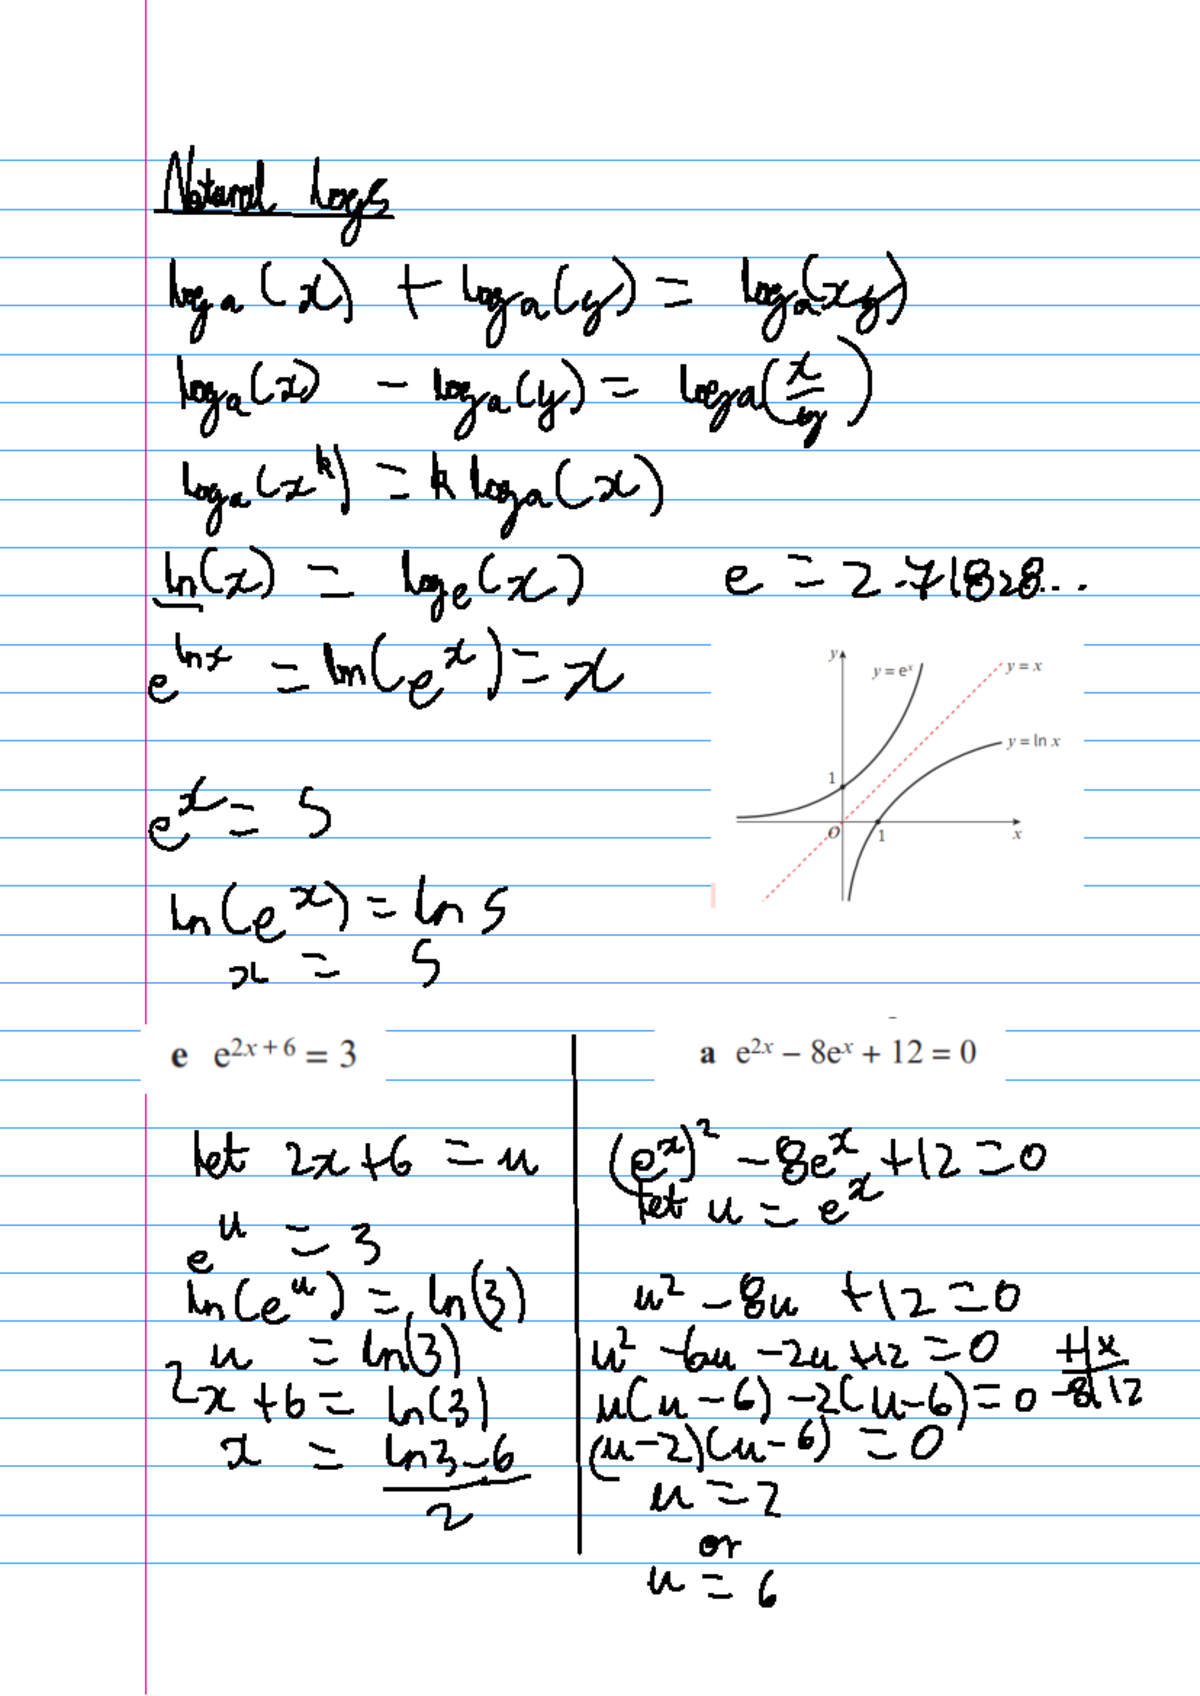 Natural Logs
logₐ(x) + logₐ(y) = logₐ(xy)
logₐ(x) - logₐ(y) = logₐ(x/y)
logₐ(xᵏ) = k logₐ(x)
ln(x) = logₑ(x)   e = 2.71828...
e^(ln x) = ln(e^x) = x
y
y = eˣ
y = x
y = ln x
1
O
1
x
eˣ = 5
ln(eˣ) = ln 5
x = 5
e e^(2x + 6) = 3
let 2x+6 = u
eᵘ = 3
ln(eᵘ) = ln(3)
u = ln(3)
2x+6 = ln(3)
x = (ln3-6)/2
a e²ˣ − 8eˣ + 12 = 0
(eˣ)² - 8eˣ + 12 = 0
let u = eˣ
u² - 8u + 12 = 0
u² - 6u - 2u + 12 = 0
+ | x
u(u-6) - 2(u-6) = 0
-8 | 12
(u-2)(u-6) = 0
u = 2
or
u = 6